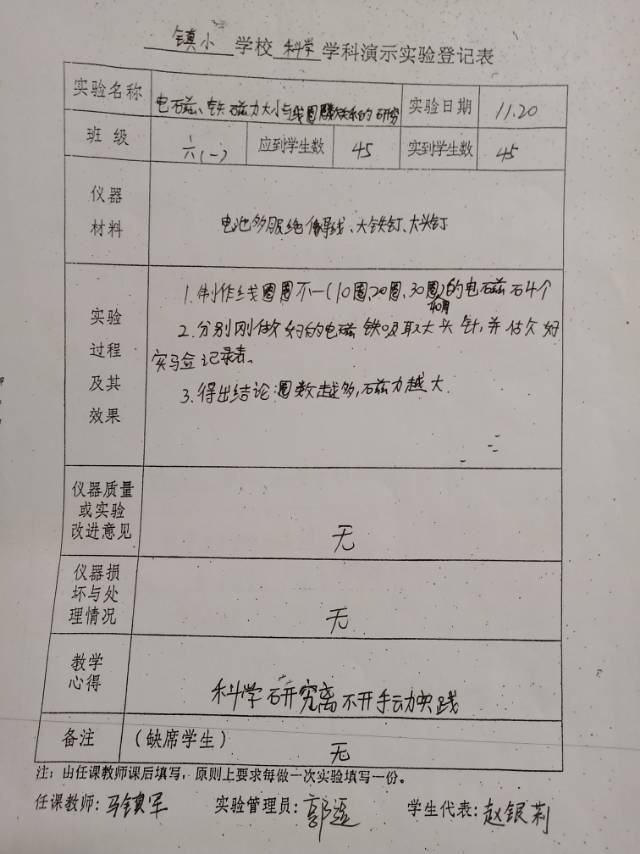 镇小 学校 科学 学科演示实验登记表
实验名称 电石兹、铁石兹力大小与线圈圈数关系的研究 实验日期 11.20
班级 六(一) 应到学生数 45 实到学生数 45
仪器
材料
电池 导线、大铁钉、大头钉
实验
过程
及其
效果
1.制作线圈圈不一(10圈,20圈、30圈)的电磁石4个
2.分别 做好的电磁铁吸取大头针,并 好
实验记录表。
3.得出结论:圈数越多,石兹力越大.
仪器质量
或实验
改进意见
无
仪器损
坏与处
理情况
无
教学
心得
科学研究离不开手动实践
备注 (缺席学生) 无
注:由任课教师课后填写,原则上要求每做一次实验填写一份。
任课教师:马镇军 实验管理员:郭 学生代表:赵银莉